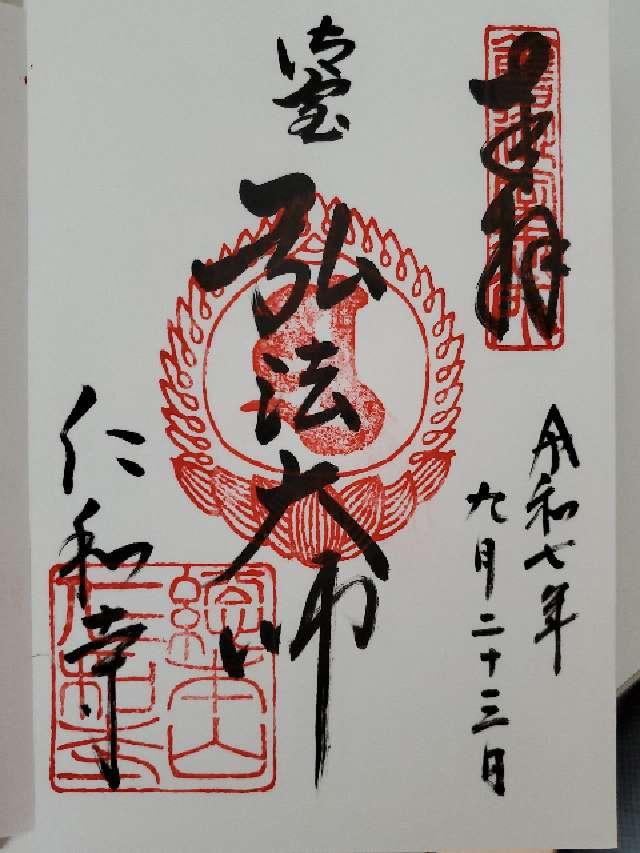 奉拝
令和七年
九月二十三日
御室
弘法大師
仁和寺
総本山
仁和寺